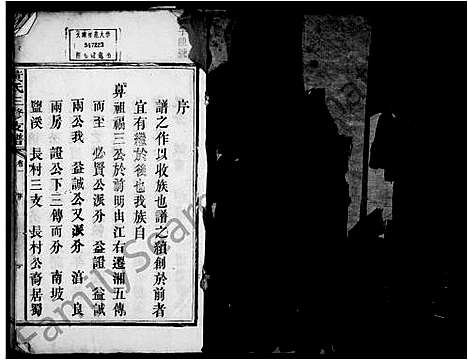 序
譜之作以收族也譜之續創於前者
宜有繼於後也我族自
昇祖福三公於前明由江右遷湘五傳
而至 必賢公派分 益證 益誠
兩公我 益誠公又派分 滔 良
兩房 證公下三傳而分 南坡
鹽溪 長村三支 長村公裔居蜀
黃氏三修支譜
547223
FamilySearch